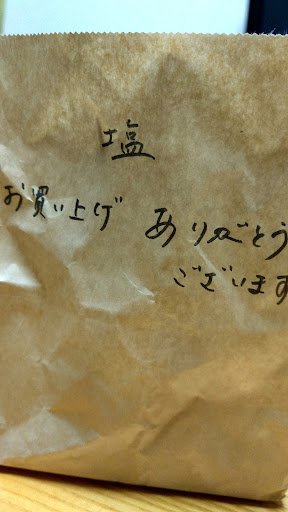 塩
お買い上げ ありがとう
ございます